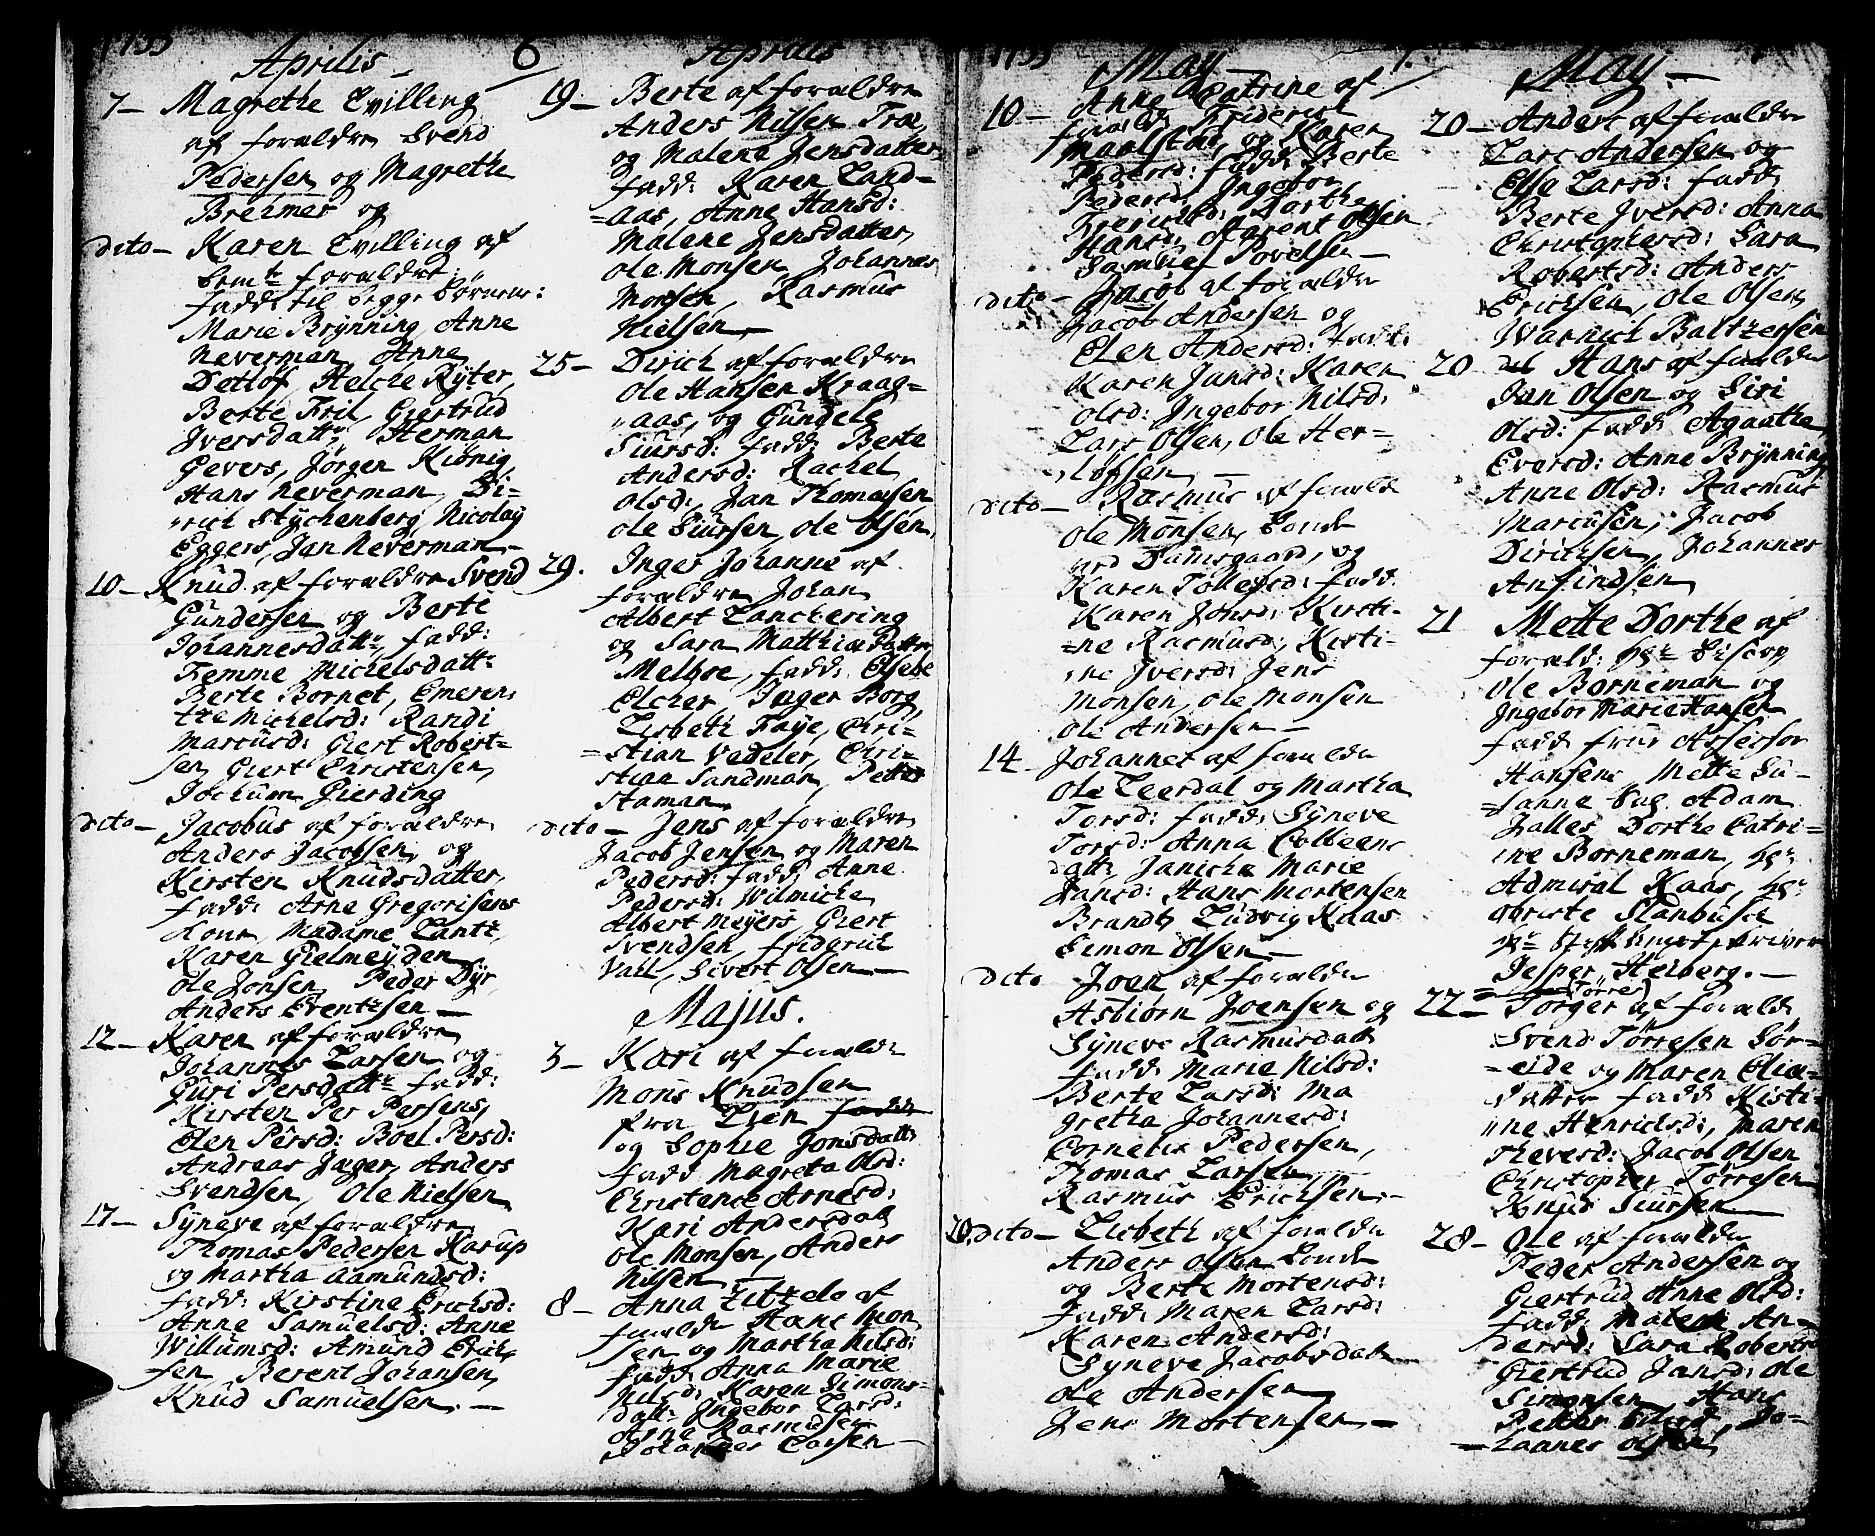 1733
Aprilis
6
7- Magrethe Tvilling
af forældre Svend
Pedersen og Magrethe
Brehmer og
dito- Karen Tvilling af
bemte forældre
fadd: til begge Börnene:
Marie Brÿnning, Anne
Neverman, Anne
Detlöf, Helche Rÿter,
Berte Friis, Giertrud
Iversdattr, Herman
Gevers, Jørgen Kiønig,
Hans Neverman, Di=
rich Stÿchenberg, Nicolaÿ
Eggers, Jan Neverman-
10- Knud af forældre Svend
Gündersen og Berte
Johannesdattr, fadd:
Femme Michelsdattr
Berte Bornet, Emeren=
tze Michelsd: Randi
Marcusd: Giert Robert=
sen, Giert Christensen,
Jochum Gierding
dito- Jacobus af forældre
Anders Jacobsen og
Kirsten Knudsdatter,
fadd: Arne Gregorisens
Kone, Madame Lantz,
Karen Gielmeÿden
Ole Jonsen, Peder Dÿr,
Anders Brentzsen-
12- Karen af forældre
Johannes Larsen og
Güri Persdattr fadd:
Kirsten Per Persens,
Elen Persd: Boel Persd:
Andreas Jæger, Anders
Svendsen, Ole Nielsen
17- Sÿneve af forældre
Thomas Pedersen Karup
og Martha Aamundsd:
fadd: Kirstine Erichsd:
Anne Samuelsd: Anne
Willumsd: Amund Erich=
sen, Berent Johansen,
Knud Samuelsen.-
Aprilis
19- Berte af forældre
Anders Nilsen Træ,
og Malene Jensdatter
fadd: Karen Land=
=aas, Anne Hansd:
Malene Jensdatter,
Ole Monsen, Johannes
Monsen, Rasmus
Nielsen,-
25- Dirich af forældre
Ole Hansen Kraag=
=aas, og Gündele
Siursd: fadd: Berte
Andersd: Rachel
Olsd:, Jan Thomassen
Ole Siursen, Ole Olsen,
29. Inger Johanne af
forældre Johan
Albert Lanckering
og Sara Matthiædatter
Melhoe, fadd: Elsebe
Elcher, Inger Borg,
Lisbeth Faÿe, Chri=
=stian Vedeler, Chri=
stian Sandman, Petter
Staman,
dito- Jens af forældre
Jacob Jensen og Maren
Pedersd: fadd: Anne
Pedersd: Wilmiche
Albert Meÿers, Giert
Svendsen, Friderich
Vall, Sivert Olsen-
Majus.
3- Kari af forældre
Mons Knudsen
fra Lien
og Sophie Jonsdatt:
fadd: Magreta Olsd:
Christence Arnesd:
Kari Andersdatt
Ole Monsen, Anders
Nilsen
8- Anna Zitzele af
forældre Hans Mon
sen og Martha Nilsd:
fadd: Anna Marie
Nilsd: Karen Simons=
datt: Ingebor Larsd:
Arne Rasmusen
Johannes Larsen
1733
May
7.
10- Anne Catrine af
forældr: Friderich
Maalstad, og Karen
Pedersd: fadd: Berte
Pedersd: Ingebor
Frerichsd: Dorthe
Hansd: Harent Olsen
Samuel Povelsen-
dito- Jacob af forældre
Jacob Andersen og
Elen Andersd: fadd:
Karen Jansd: Karen
Olsd: Ingebor Nilsd:
Lars Olsen, Ole Her=
=lofsen,-
dito- Rasmus af foræld:
Ole Monsen, bonde
ved Damsgaard, og
Karen Tollefsd: fadd:
Karen Johsd: Kirsti=
=ne Rasmusd: Kirsti=
=ne Iversd: Jens
Monsen, Ole Monsen
Ole Andersen-
14- Johannes af forældre
Ole Leerdal og Martha
Torsd: fadd: Sÿneve
Torsd: Anna Colbeens
datt: Janicke Marie
Jansd: Hans Mortensen
Brandt, Ludvig Kaas
Simon Olsen-
dito Joen af forældre
Asbiørn Joensen og
Sÿneve Rasmusdatt
fadd: Marie Nilsd:
Berte Larsd: Ma
gretha Johannesd:
Cornelis Pedersen,
Thomas Larsen,
Rasmus Erichsen.-
20. dito- Lisbeth af forældre
Anders Olsen bonde
og Berte Mortensd:
fadd: Maren Larsd:
Karen Andersd:
Sÿneve Jacobsdatt
Ole Andersen,
Jens Mortensen-
May-
20- Anders af forældre
Lars Andersen og
Else Larsd: fadd:
Berte Iversd: Anna
Christophersd: Sara
Robertsd: Anders
Erichsen, Ole Olsen,
Warnich Baltzersen
20 Hans af forældre
Jan Olsen og Siri
Olsd: fadd: Agaathe
Eversd: Anne Brÿnning,
Anne Olsd: Rasmus
Marcusen, Jacob
Dirichsen, Johannes
Anfindsen
21 Mette Dorthe af
foræld: Hr: Biscop
Ole Borneman og
Ingebor Marie Hansen
fadd: frue Assessor
Hansens, Mette Su=
=sanne Sal. Adam
Jalles, Dorthe Catri=
=ne Borneman, Hr:
Admiral Kaas, Hr:
Obriste Stanbusch
Hr:
Jesper Heiberg.-
22- Torger (Torre) af foræld:
Svend Tørresen Sør=
=eide og Maren Eliæ=
datter fadd: Kisti=
=ne Henrichsd: Maren
Thevesd: Jacob Olsen
Christopher Tørresen
Knud Siursen-
28- Ole af forældre
Peder Andersen og
Giertrud Anne Olsd:
fadd: Malene An=
dersd: Sara Roberts
Giertrud Jansd: Ole
Simonsen, Hans
Petter Jo=
=hannes Olsen